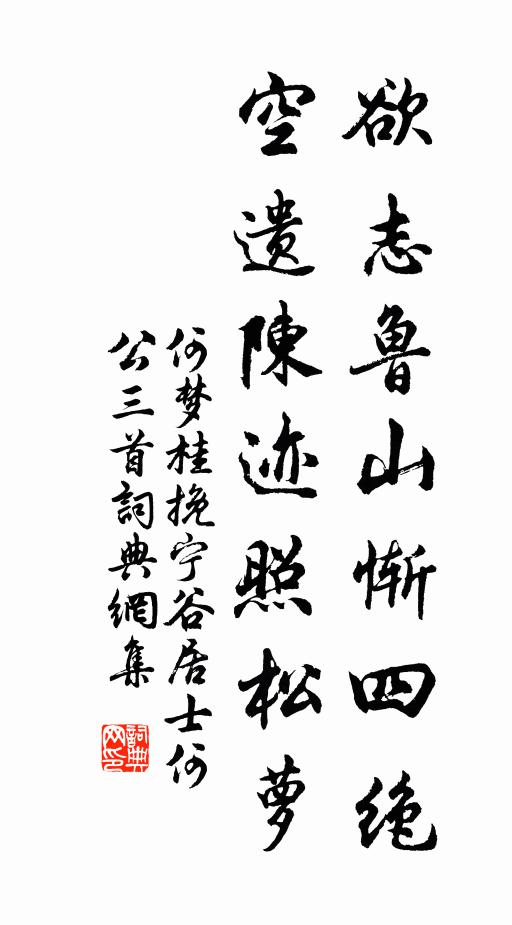 欲志鲁山惭四绝
空遗陳迹照松萝
何梦桂挽宁谷居士何
公三首詞典網集
詞典
网印